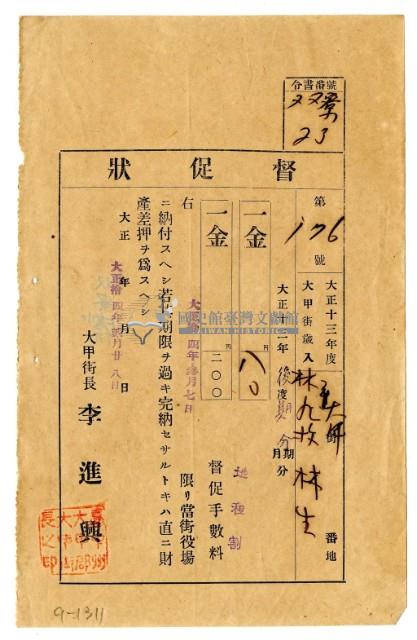 令書番號
双寮
23
督促狀
第176號
大正十三年度
大甲街歲入
林九牧 林生
番地
大正十三年 後期分
期分
月分
一金 八〇
地租割
一金 圓 二〇〇
督促手數料
右 大正拾四年 月七日 限リ當街役場
ニ納付スヘシ若此期限ヲ過キ完納セサルトキハ直ニ財
產差押ヲ爲スヘシ
大正 年 月 日
大正拾四年 月廿八日
大甲街長 李進興
國史館臺灣文獻館
TAIWAN HISTORICA
9-1311